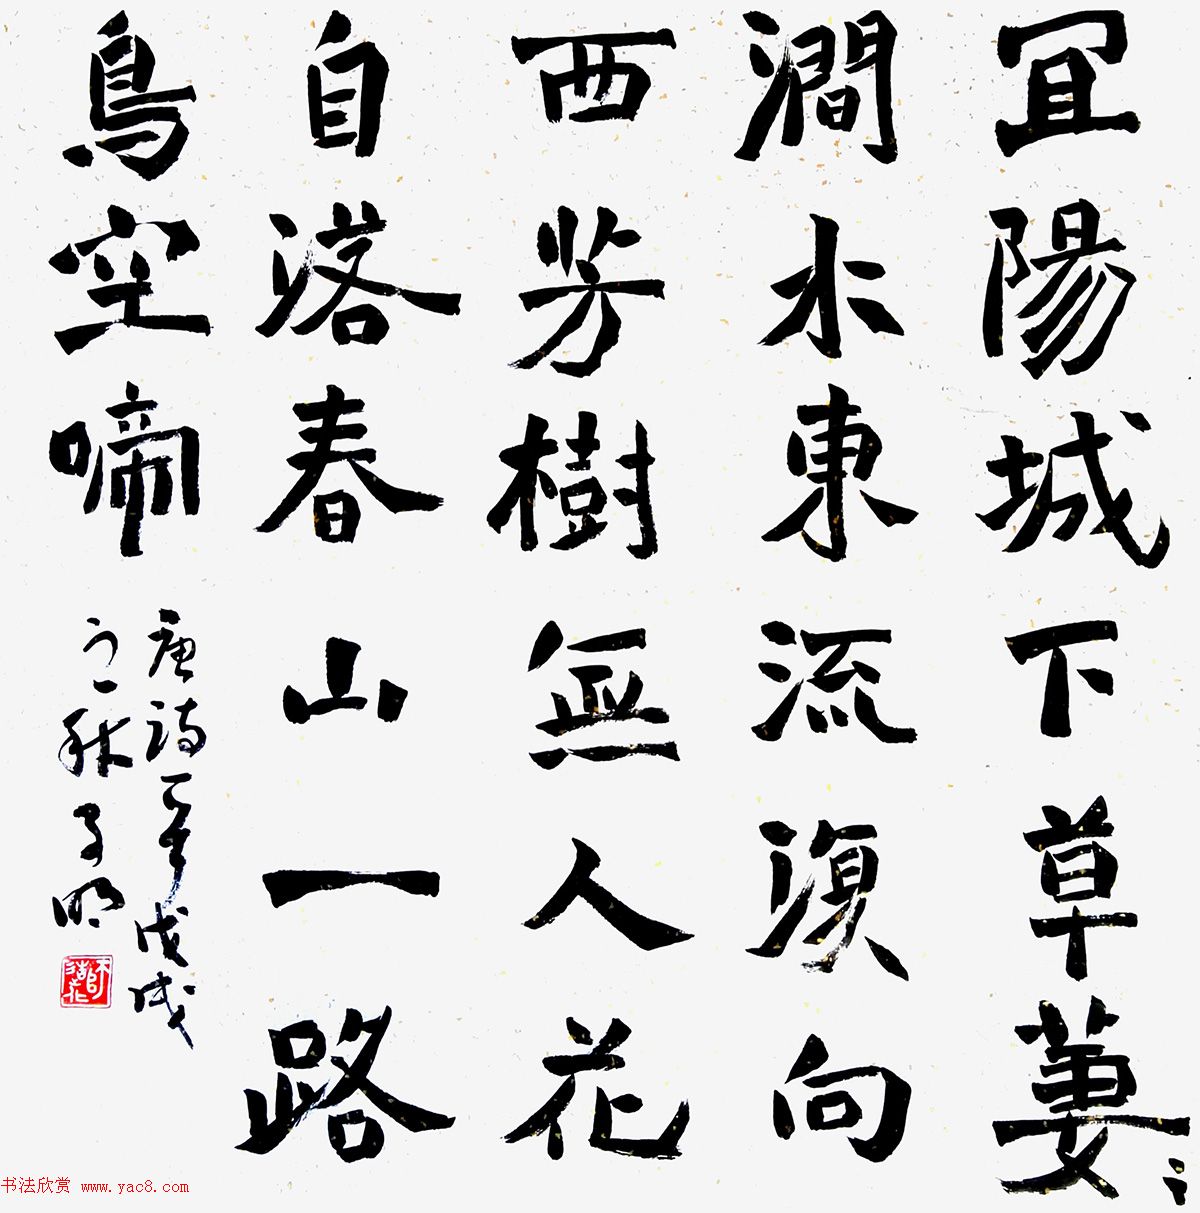 冝陽城下草萋〻
澗水東流湏向
西芳樹無人花
自落春山一路
鳥空啼
唐詩一章戊戌
之秋子明
书法欣赏 www.yac8.com